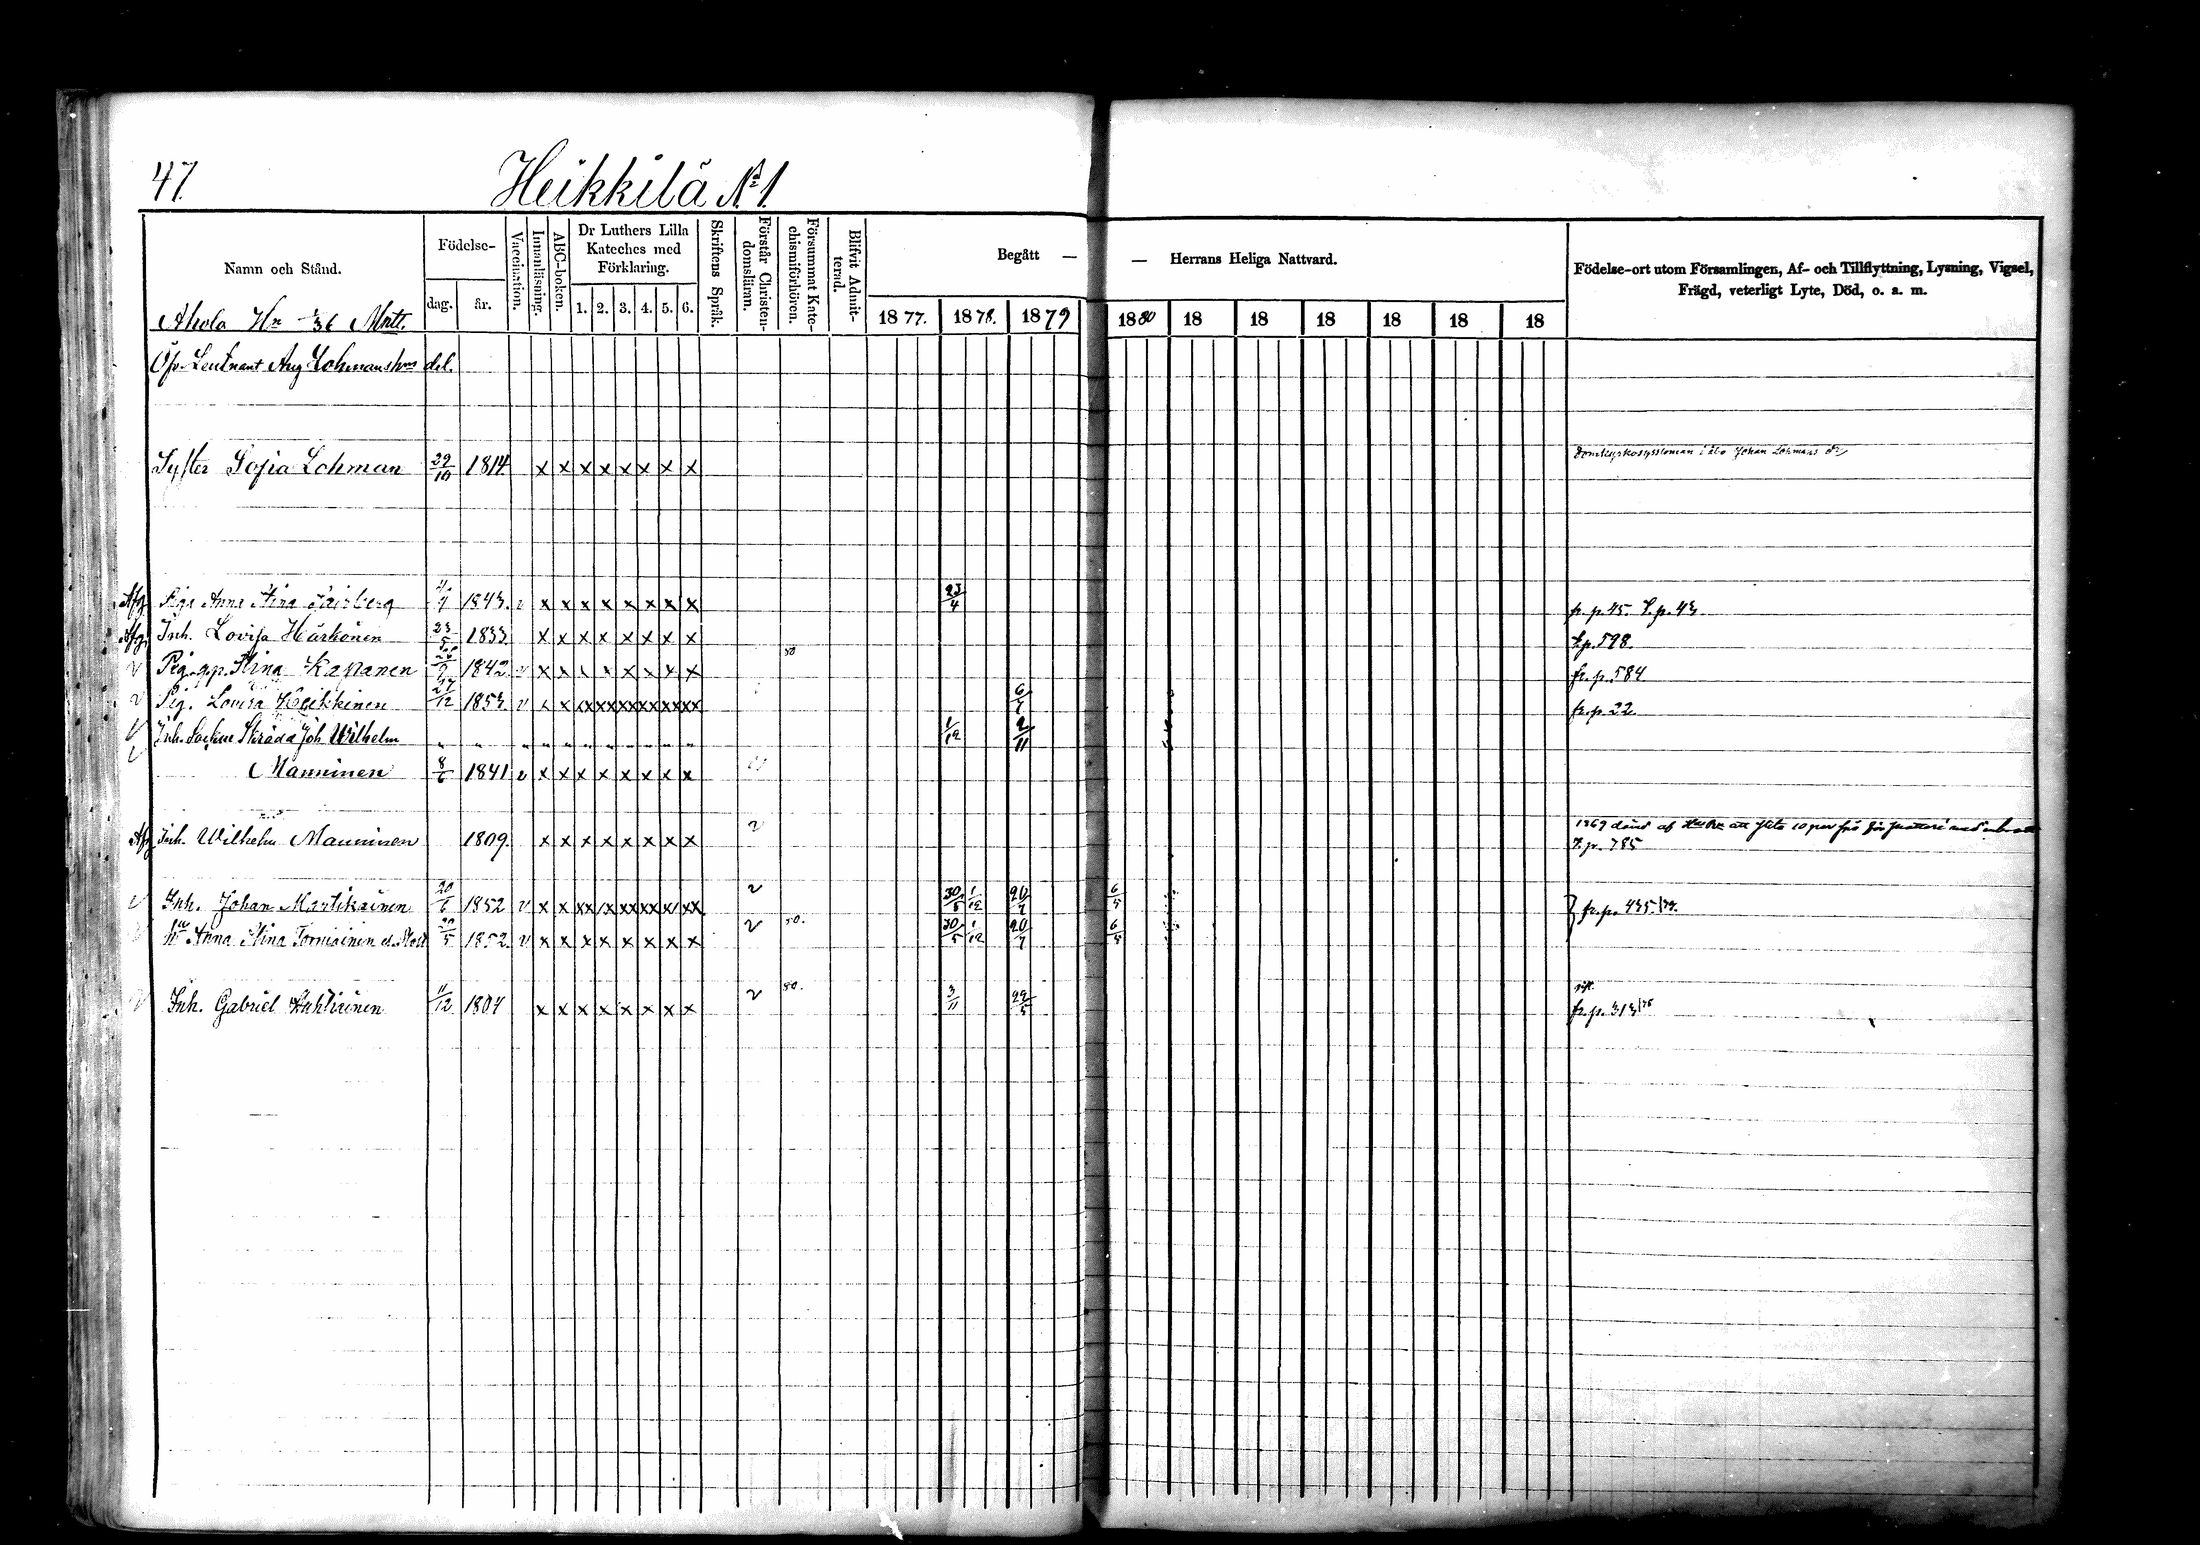 47.
Heikkilä No 1.
Namn och Stånd.
Födelse-
dag.
år.
Vaccination.
Innanläsning.
ABC-boken.
Dr Luthers Lilla
Kateches med
Förklaring.
1. 2. 3. 4. 5. 6.
Skriftens Språk.
Förstår Christen-
domsläran.
Försummat Kate-
chismiförhören.
Blifvit Admit-
terad.
Begått — — Herrans Heliga Nattvard.
1877. 1878. 1879 1880 18 18 18 18 18 18
Födelse-ort utom Församlingen, Af- och Tillflyttning, Lysning, Vigsel,
Frägd, veterligt Lyte, Död, o. a. m.
Ahola Hn 1/36 Mntt.
Öfv. Leutnant Aug Lohmans hus del.
Syster Sofia Lohman 29/10 1814 x x x x x x x x Johan Lohmans dr
Afg. Piga Anna Stina 1843. v x x x x x x x x 23/4 fr. p. 45. T. p. 43.
Afg. Inh. Lovisa Härkönen 23/5 1833. x x x x x x x x T. p. 598.
v Pig. Stina 1842 v x x x x x x x x 80 fr. p. 584
v Pig. Lovisa Heikkinen 27/12 1853 v x x xx xx xx xx xx xx 6/7 fr. p. 22.
v Inh. Joh Wilhelm 1/12 2/11
v Manninen 8/6 1841 v x x x x x x x x
Afg Inh. Wilhelm Manninen 1809. x x x x x x x x v 1869 dömd af
T. p. 785
v Inh. Johan Martikainen 20/6 1852 v x x xx x xx xx x xx v 30/5 1/12 20/7 6/5 fr. p. 435/79.
hu Anna Stina Torniainen 1852. v x x x x x x x x v 80. 30/5 1/12 20/7 6/5
v Inh. Gabriel Huhtiainen 11/12 1804 x x x x x x x x v 80. 3/11 29/5 gift.
fr. p. 313/78